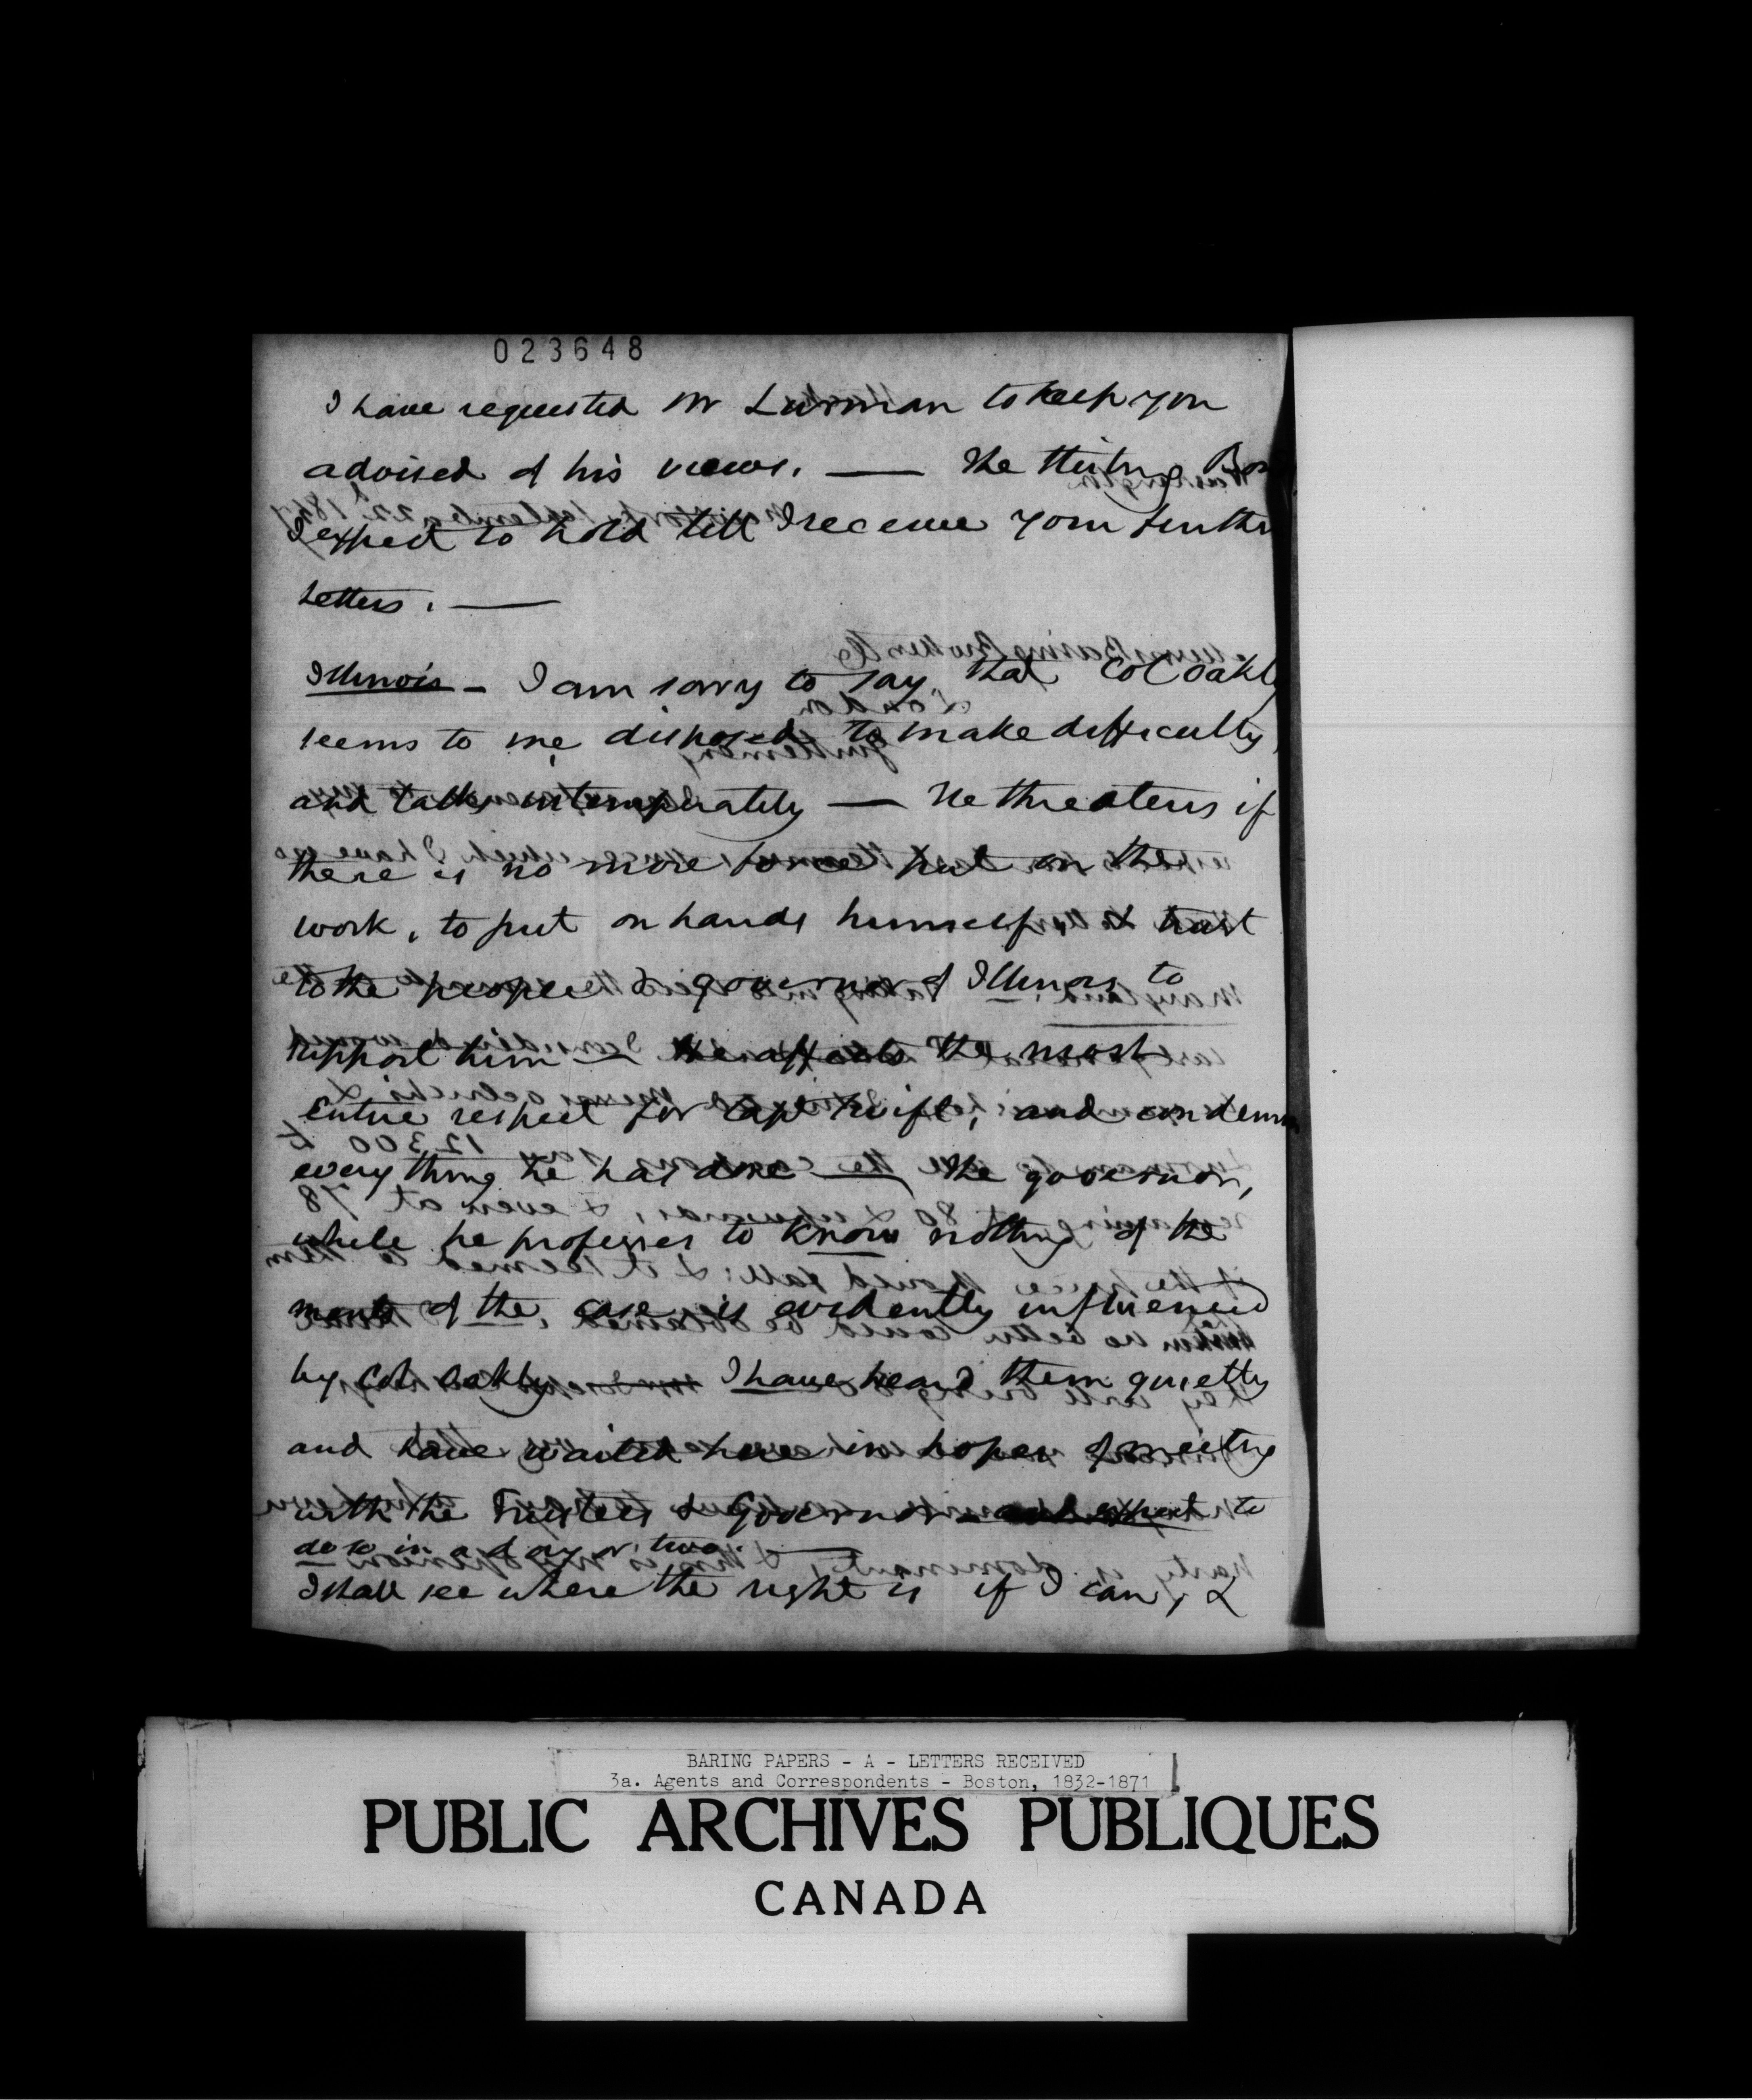 023648
I have requested Mr Lurman to keep you
advised of his views. — The
I expect to hold till I receive your further
letters. —
Illinois — I am sorry to say that Col Oakly
seems to me disposed to make difficulty
and talks intemperately — He threatens if
there is no more force put on the
work, to put on hands himself, & trust
to the people & governor of Illinois to
support him — He affects the most
entire respect for Capt Swift, and condemns
every thing he has done — The governor,
while he professes to know nothing of the
merits of the case is evidently influenced
by Col Oakly — I have heard them quietly
and have waited here in hopes of meeting
with the Trustees & Governor — and expect to
do so in a day or two. —
I shall see where the right is if I can, &
BARING PAPERS - A - LETTERS RECEIVED
3a. Agents and Correspondents - Boston, 1832-1871
PUBLIC ARCHIVES PUBLIQUES
CANADA